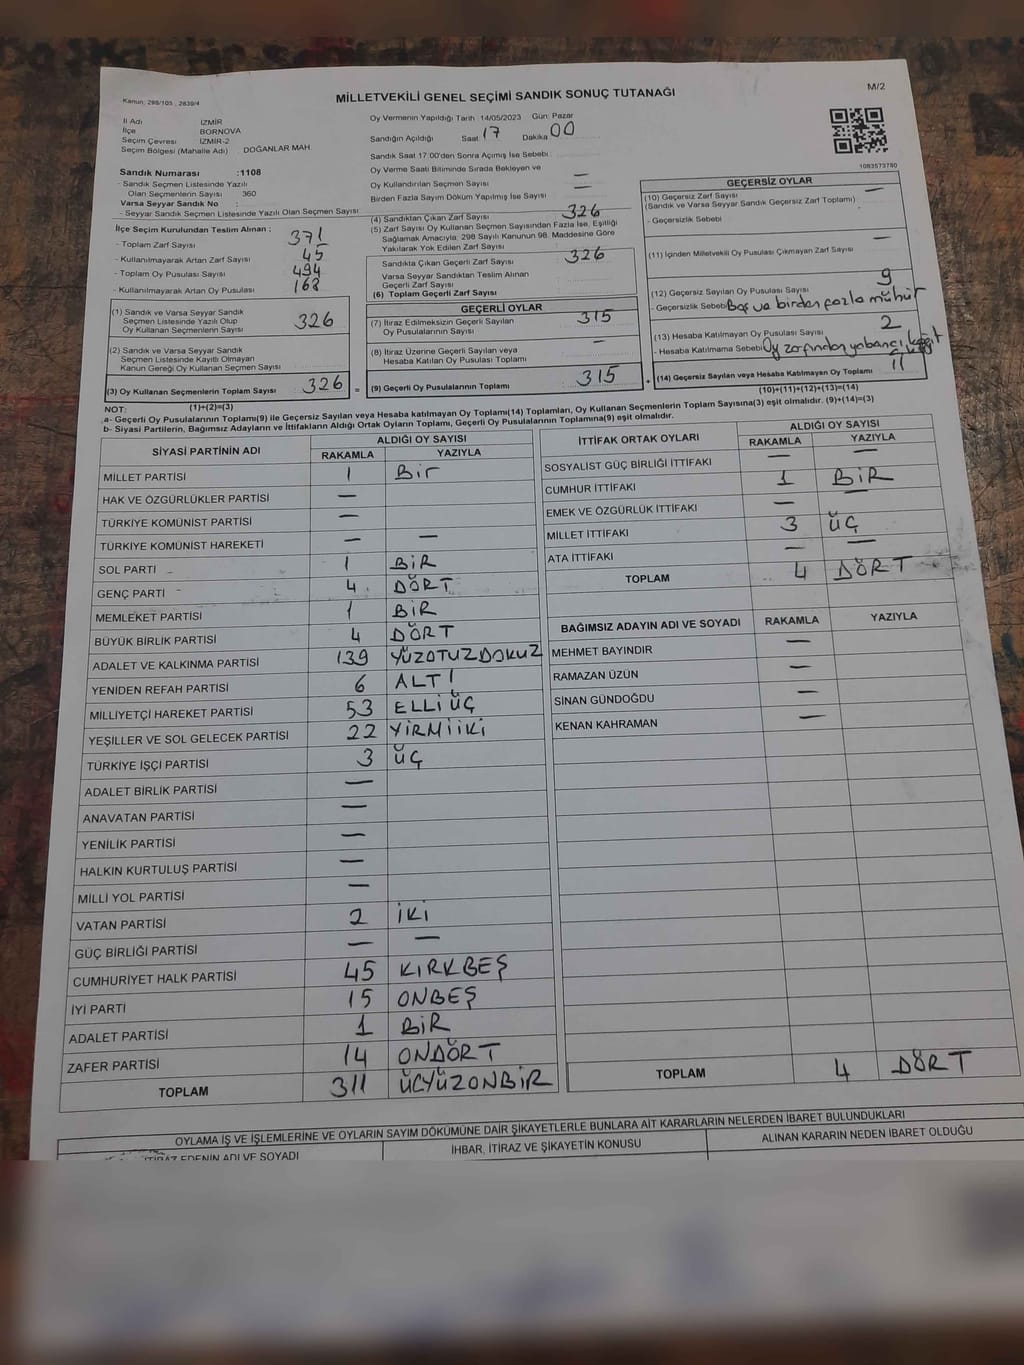 MİLLETVEKİLİ GENEL SEÇİMİ SANDIK SONUÇ TUTANAĞI
M/2
Kanun; 298/105 , 2839/4
İl Adı İZMİR
İlçe BORNOVA
Seçim Çevresi İZMİR-2
Seçim Bölgesi (Mahalle Adı) DOĞANLAR MAH.
Sandık Numarası :1108
- Sandık Seçmen Listesinde Yazılı
Olan Seçmenlerin Sayısı 360
Varsa Seyyar Sandık No :
- Seyyar Sandık Seçmen Listesinde Yazılı Olan Seçmen Sayısı
İlçe Seçim Kurulundan Teslim Alınan :
- Toplam Zarf Sayısı 371
- Kullanılmayarak Artan Zarf Sayısı 45
- Toplam Oy Pusulası Sayısı 494
- Kullanılmayarak Artan Oy Pusulası 168
(1) Sandık ve Varsa Seyyar Sandık
Seçmen Listesinde Yazılı Olup
Oy Kullanan Seçmenlerin Sayısı 326
(2) Sandık ve Varsa Seyyar Sandık
Seçmen Listesinde Kayıtlı Olmayan
Kanun Gereği Oy Kullanan Seçmen Sayısı
(3) Oy Kullanan Seçmenlerin Toplam Sayısı 326 =
(1)+(2)=(3)
Oy Vermenin Yapıldığı Tarih 14/05/2023 Gün: Pazar
Sandığın Açıldığı Saat 17 Dakika 00
Sandık Saat 17:00'den Sonra Açımış İse Sebebi
Oy Verme Saati Bitiminde Sırada Bekleyen ve
Oy Kullandırılan Seçmen Sayısı —
Birden Fazla Sayım Döküm Yapılmış İse Sayısı —
(4) Sandıktan Çıkan Zarf Sayısı 326
(5) Zarf Sayısı Oy Kullanan Seçmen Sayısından Fazla İse, Eşitliği
Sağlamak Amacıyla; 298 Sayılı Kanunun 98. Maddesine Göre
Yakılarak Yok Edilen Zarf Sayısı
Sandıkta Çıkan Geçerli Zarf Sayısı 326
Varsa Seyyar Sandıktan Teslim Alınan
Geçerli Zarf Sayısı
(6) Toplam Geçerli Zarf Sayısı
GEÇERLİ OYLAR
(7) İtiraz Edilmeksizin Geçerli Sayılan
Oy Pusulalarının Sayısı 315
(8) İtiraz Üzerine Geçerli Sayılan veya
Hesaba Katılan Oy Pusulası Toplamı —
(9) Geçerli Oy Pusulalarının Toplamı 315 +
1083573780
GEÇERSİZ OYLAR
(10) Geçersiz Zarf Sayısı —
(Sandık ve Varsa Seyyar Sandık Geçersiz Zarf Toplamı)
- Geçersizlik Sebebi
(11) İçinden Milletvekili Oy Pusulası Çıkmayan Zarf Sayısı —
(12) Geçersiz Sayılan Oy Pusulası Sayısı 9
- Geçersizlik Sebebi Boş ve birden fazla mühür
(13) Hesaba Katılmayan Oy Pusulası Sayısı 2
- Hesaba Katılmama Sebebi Oy zarfından yabancı kağıt
(14) Geçersiz Sayılan veya Hesaba Katılmayan Oy Toplamı 11
(10)+(11)+(12)+(13)=(14)
NOT:
a- Geçerli Oy Pusulalarının Toplamı(9) ile Geçersiz Sayılan veya Hesaba katılmayan Oy Toplamı(14) Toplamları, Oy Kullanan Seçmenlerin Toplam Sayısına(3) eşit olmalıdır. (9)+(14)=(3)
b- Siyasi Partilerin, Bağımsız Adayların ve İttifakların Aldığı Ortak Oyların Toplamı, Geçerli Oy Pusulalarının Toplamına(9) eşit olmalıdır.
SİYASİ PARTİNİN ADI ALDIĞI OY SAYISI
RAKAMLA YAZIYLA
MİLLET PARTİSİ 1 Bir
HAK VE ÖZGÜRLÜKLER PARTİSİ —
TÜRKİYE KOMÜNİST PARTİSİ —
TÜRKİYE KOMÜNİST HAREKETİ — —
SOL PARTİ 1 BİR
GENÇ PARTİ 4 DÖRT
MEMLEKET PARTİSİ 1 BİR
BÜYÜK BİRLİK PARTİSİ 4 DÖRT
ADALET VE KALKINMA PARTİSİ 139 YÜZOTUZDOKUZ
YENİDEN REFAH PARTİSİ 6 ALTI
MİLLİYETÇİ HAREKET PARTİSİ 53 ELLİ ÜÇ
YEŞİLLER VE SOL GELECEK PARTİSİ 22 YİRMİ İKİ
TÜRKİYE İŞÇİ PARTİSİ 3 ÜÇ
ADALET BİRLİK PARTİSİ —
ANAVATAN PARTİSİ —
YENİLİK PARTİSİ —
HALKIN KURTULUŞ PARTİSİ —
MİLLİ YOL PARTİSİ —
VATAN PARTİSİ 2 İKİ
GÜÇ BİRLİĞİ PARTİSİ — —
CUMHURİYET HALK PARTİSİ 45 KIRKBEŞ
İYİ PARTİ 15 ONBEŞ
ADALET PARTİSİ 1 BİR
ZAFER PARTİSİ 14 ONDÖRT
TOPLAM 311 ÜÇYÜZONBİR
İTTİFAK ORTAK OYLARI ALDIĞI OY SAYISI
RAKAMLA YAZIYLA
SOSYALİST GÜÇ BİRLİĞİ İTTİFAKI — —
CUMHUR İTTİFAKI 1 BİR
EMEK VE ÖZGÜRLÜK İTTİFAKI — —
MİLLET İTTİFAKI 3 ÜÇ
ATA İTTİFAKI — —
TOPLAM 4 DÖRT
BAĞIMSIZ ADAYIN ADI VE SOYADI RAKAMLA YAZIYLA
MEHMET BAYINDIR —
RAMAZAN ÜZÜN —
SİNAN GÜNDOĞDU —
KENAN KAHRAMAN —
TOPLAM 4 DÖRT
OYLAMA İŞ VE İŞLEMLERİNE VE OYLARIN SAYIM DÖKÜMÜNE DAİR ŞİKAYETLERLE BUNLARA AİT KARARLARIN NELERDEN İBARET BULUNDUKLARI
İTİRAZ EDENİN ADI VE SOYADI İHBAR, İTİRAZ VE ŞİKAYETİN KONUSU ALINAN KARARIN NEDEN İBARET OLDUĞU